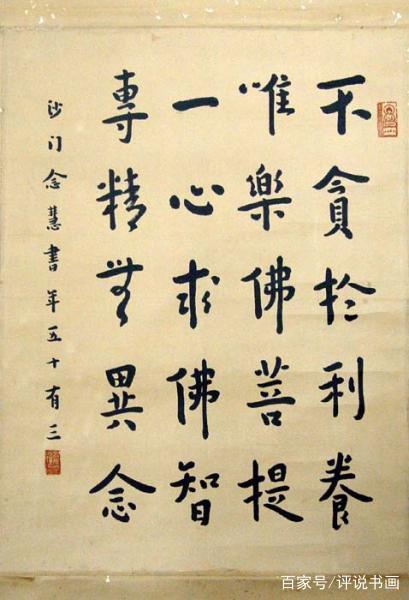 不貪於利養
唯樂佛菩提
一心求佛智
專精無異念
沙门念慧書年五十有三
百家号/评说书画